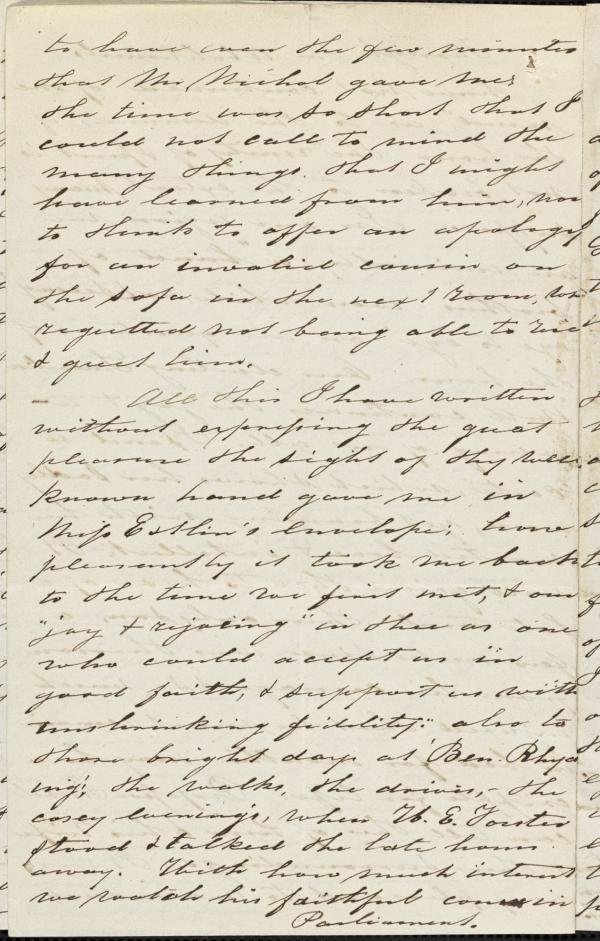 to have even the few minutes
that Mr Nichol gave me;
the time was so short that I
could not call to mind the
many things that I might
have learned from him, nor
to think to offer an apology
for an invalid cousin on
the sofa in the next room, who
regretted not being able to rise
& greet him.
All this I have written
without expressing the great
pleasure the sight of thy well
known hand gave me in
Miss Estlin's envelope; how
pleasantly it took me back
to the time we first met, & our
"joy & rejoicing" in thee as one
who could accept us in
good faith, & support us with
unshrinking fidelity: also to
those bright days at 'Ben Rhyd
ing', the walks, the drives, - the
cosey evenings, when W. E. Forster
stood & talked the late hours
away. With how much interest
we watch his faithful course in
Parliament.